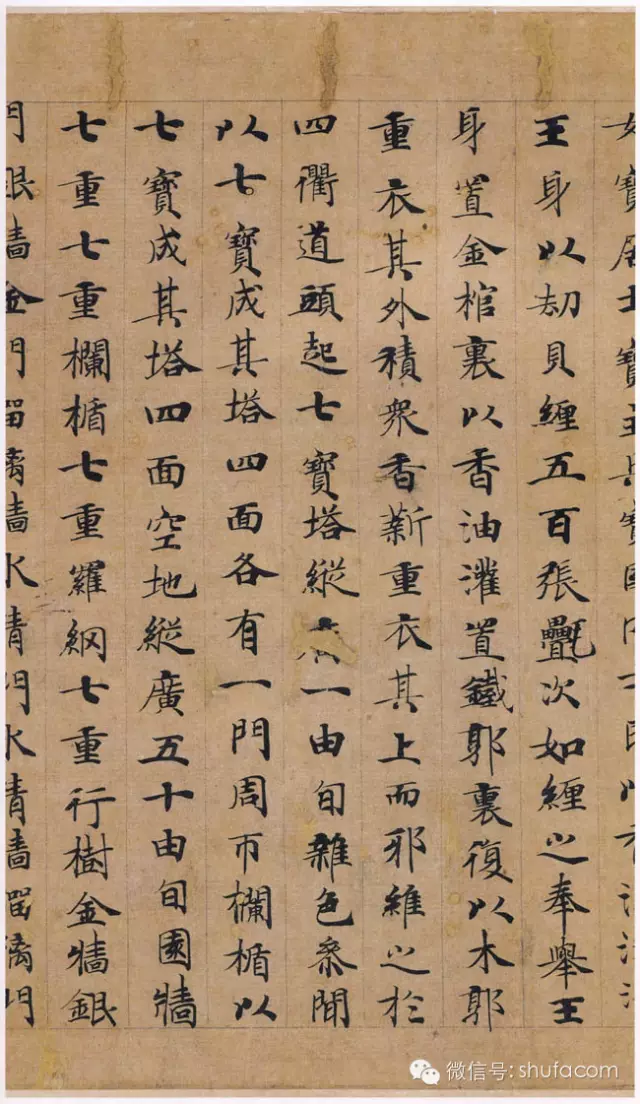 女寶居士寶主兵寶國内士民以香湯
王身以劫貝纏五百張氎次如纏之奉舉王
身置金棺裏以香油灌置鐵郭裏復以木郭
重衣其外積衆香薪重衣其上而邪維之於
四衢道頭起七寶塔縱一由旬雜色參間
以七寶成其塔四面各有一門周帀欄楯以
七寶成其塔四面空地縱廣五十由旬園牆
七重七重欄楯七重羅網七重行樹金牆銀
門銀牆金門瑠璃牆水精門水精牆瑠璃門
微信号: shufacom